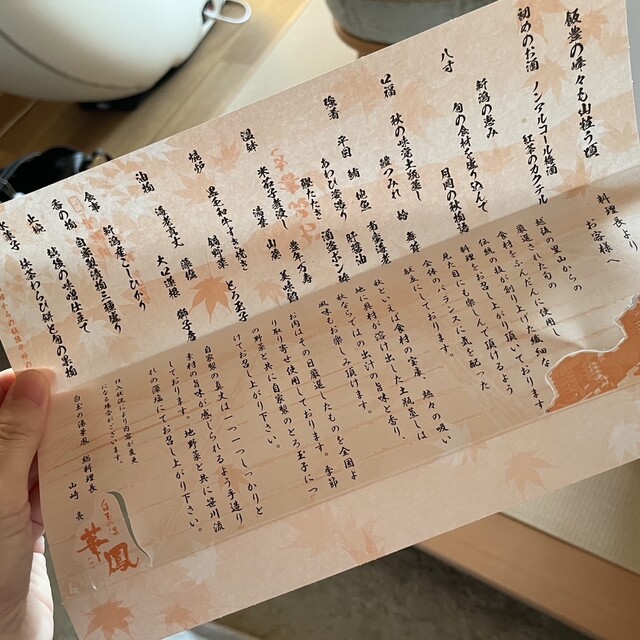 飯豊の峰々も山粧う頃
初めのお酒 ノンアルコール梅酒
紅茶のカクテル
新潟の恵み
八寸 旬の食材を盛り込んで
月岡の秋
口福 秋の味覚土瓶蒸し
鱧つみれ 蛤 舞茸
強肴 平目 鮪 地魚 南蛮海老
あわび姿造り 肝醤油
鰹たたき 酒盗ポン酢
温味 米茄子煮浸し
鍋炉 黒毛和牛すき焼き とろ玉子
鍋野菜
油物 海老真丈 藻塩
大口蓮根 獅子唐
食事 新潟産こしひかり
香の物 自家製浅漬物三種盛り
止椀 越後の味噌仕立て
水菓子 抹茶わらび餅と旬の果物
料理長より
お客様へ
越後の里山からの
厳選された旬の
食材をふんだんに使用し
伝統の技が創り上げた繊細な
料理をお召し上がり頂いております
見た目にも楽しんで頂けるよう
全体のバランスに気を配った
献立にしております。
秋といえば食材の宝庫、熱々の吸い
地に具材が溶け出した土瓶蒸しは
秋ならではの出汁の旨味と香り、
風味もお楽しみ頂けます。
お肉はその日厳選したものを全国よ
り取り寄せ使用しております。季節
の野菜と共に自家製のとろ玉子につ
けてお召し上がり下さい。
自家製の真丈は、一つ一つしっかりと
素材の旨味を感じられるよう手造り
しております。地野菜と共に笹川流
れの藻塩にてお召し上がり下さい。
仕入状況により内容が変更
になる場合がございます。
白玉の湯華鳳 総料理長
山崎 亮
白玉の湯
華鳳